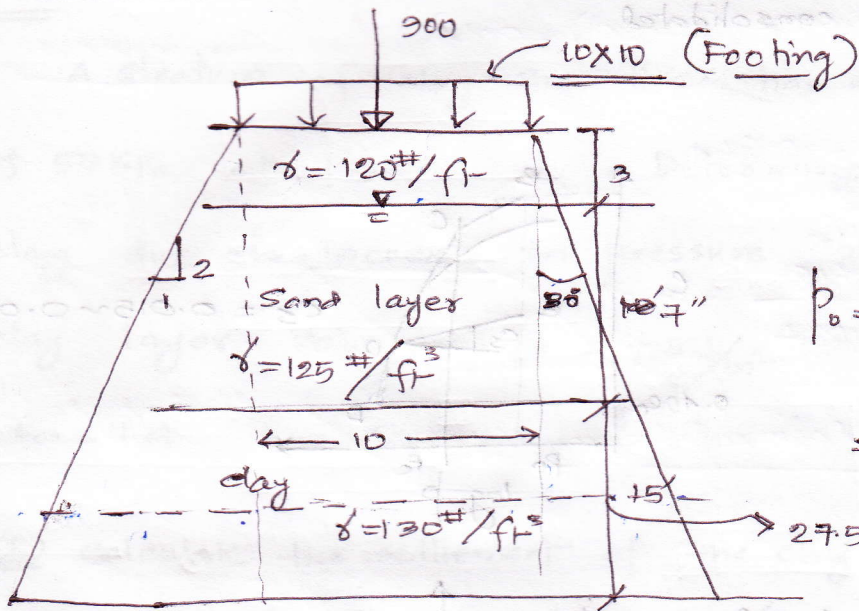 900
10X10 (Footing)
γ = 120 #/ft
3
2
1
Sand layer
30
7"
p₀ =
γ = 125 #/ft³
10
clay
15'
γ = 130 #/ft³
27.5